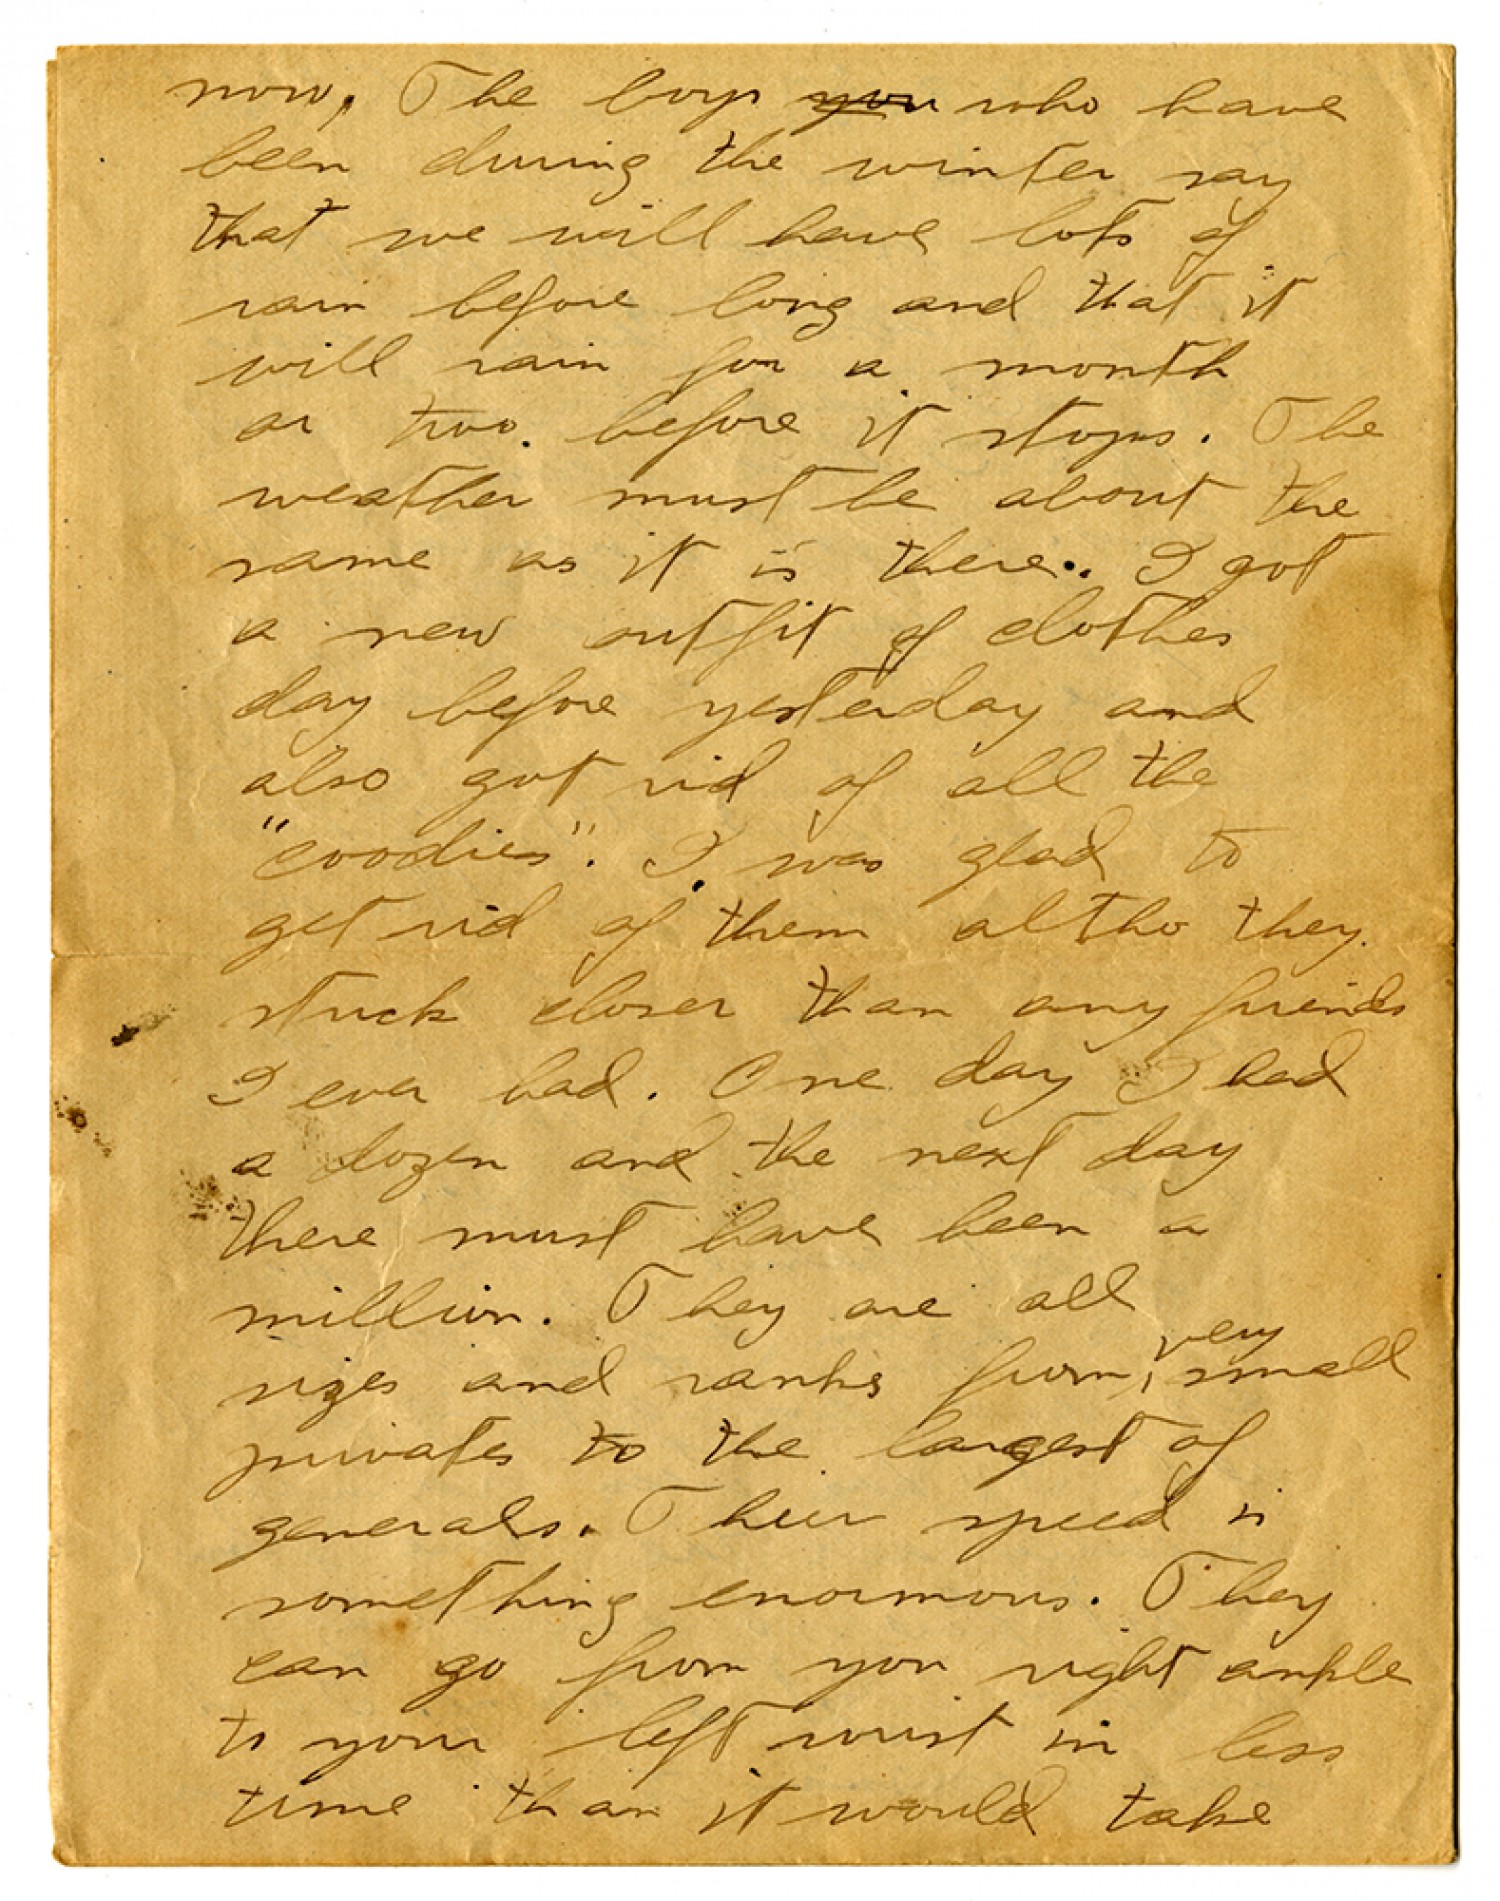 now. The boys ~~you~~ who have
been during the winter say
that we will have lots of
rain before long and that it
will rain for a month
or two before it stops. The
weather must be about the
same as it is there. I got
a new outfit of clothes
day before yesterday and
also got rid of all the
"coodies". I was glad to
get rid of them altho they
stuck closer than any friends
I ever had. One day I had
a dozen and the next day
there must have been a
million. They are all
sizes and ranks from very small
privates to the largest of
generals. Their speed is
something enormous. They
can go from you right ankle
to your left wrist in less
time than it would take